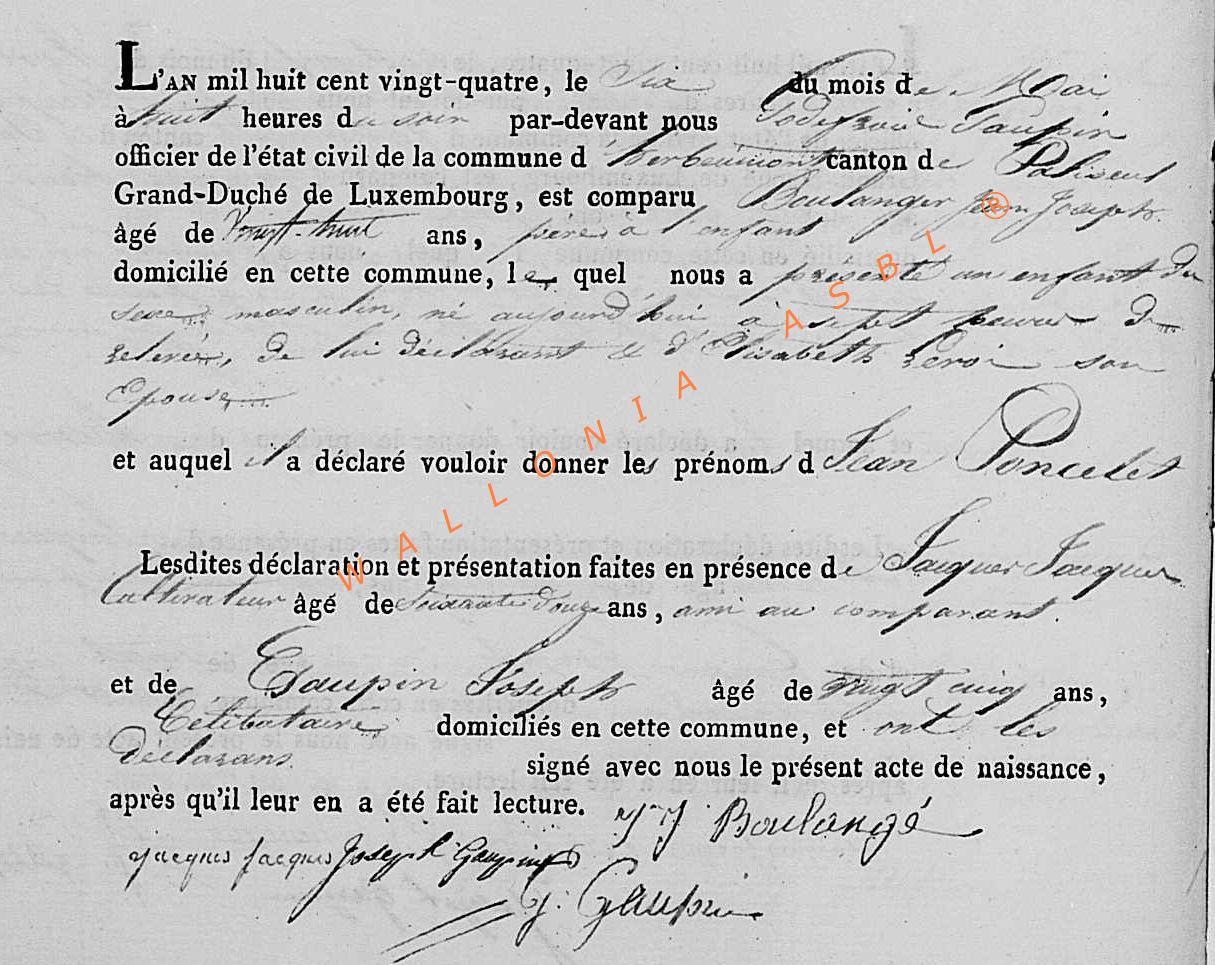 L'AN mil huit cent vingt-quatre, le Six du mois de Mai
à huit heures du soir par-devant nous Godefroid Gaupin
officier de l'état civil de la commune d'herbeumont canton de Paliseul
Grand-Duché de Luxembourg, est comparu Boulanger Jean Joseph
âgé de Vingt-huit ans, père à l'enfant
domicilié en cette commune, le quel nous a présenté un enfant du
sexe masculin, né aujourd'hui à sept heures de
relevée, de lui déclarant & d'Elisabeth Leroi son
Epouse
et auquel il a déclaré vouloir donner les prénoms d Jean Poncelet
Lesdites déclaration et présentation faites en présence de Jacques Jacques
Cultivateur âgé de soixante douze ans, ami au comparant.
et de Gaupin Joseph âgé de vingt cinq ans,
Célibataire domiciliés en cette commune, et ont les
déclarans signé avec nous le présent acte de naissance,
après qu'il leur en a été fait lecture. J J Boulangé
Jacques Jacques Joseph Gaupin
G. Gaupin
WALLONIA ASBL ®